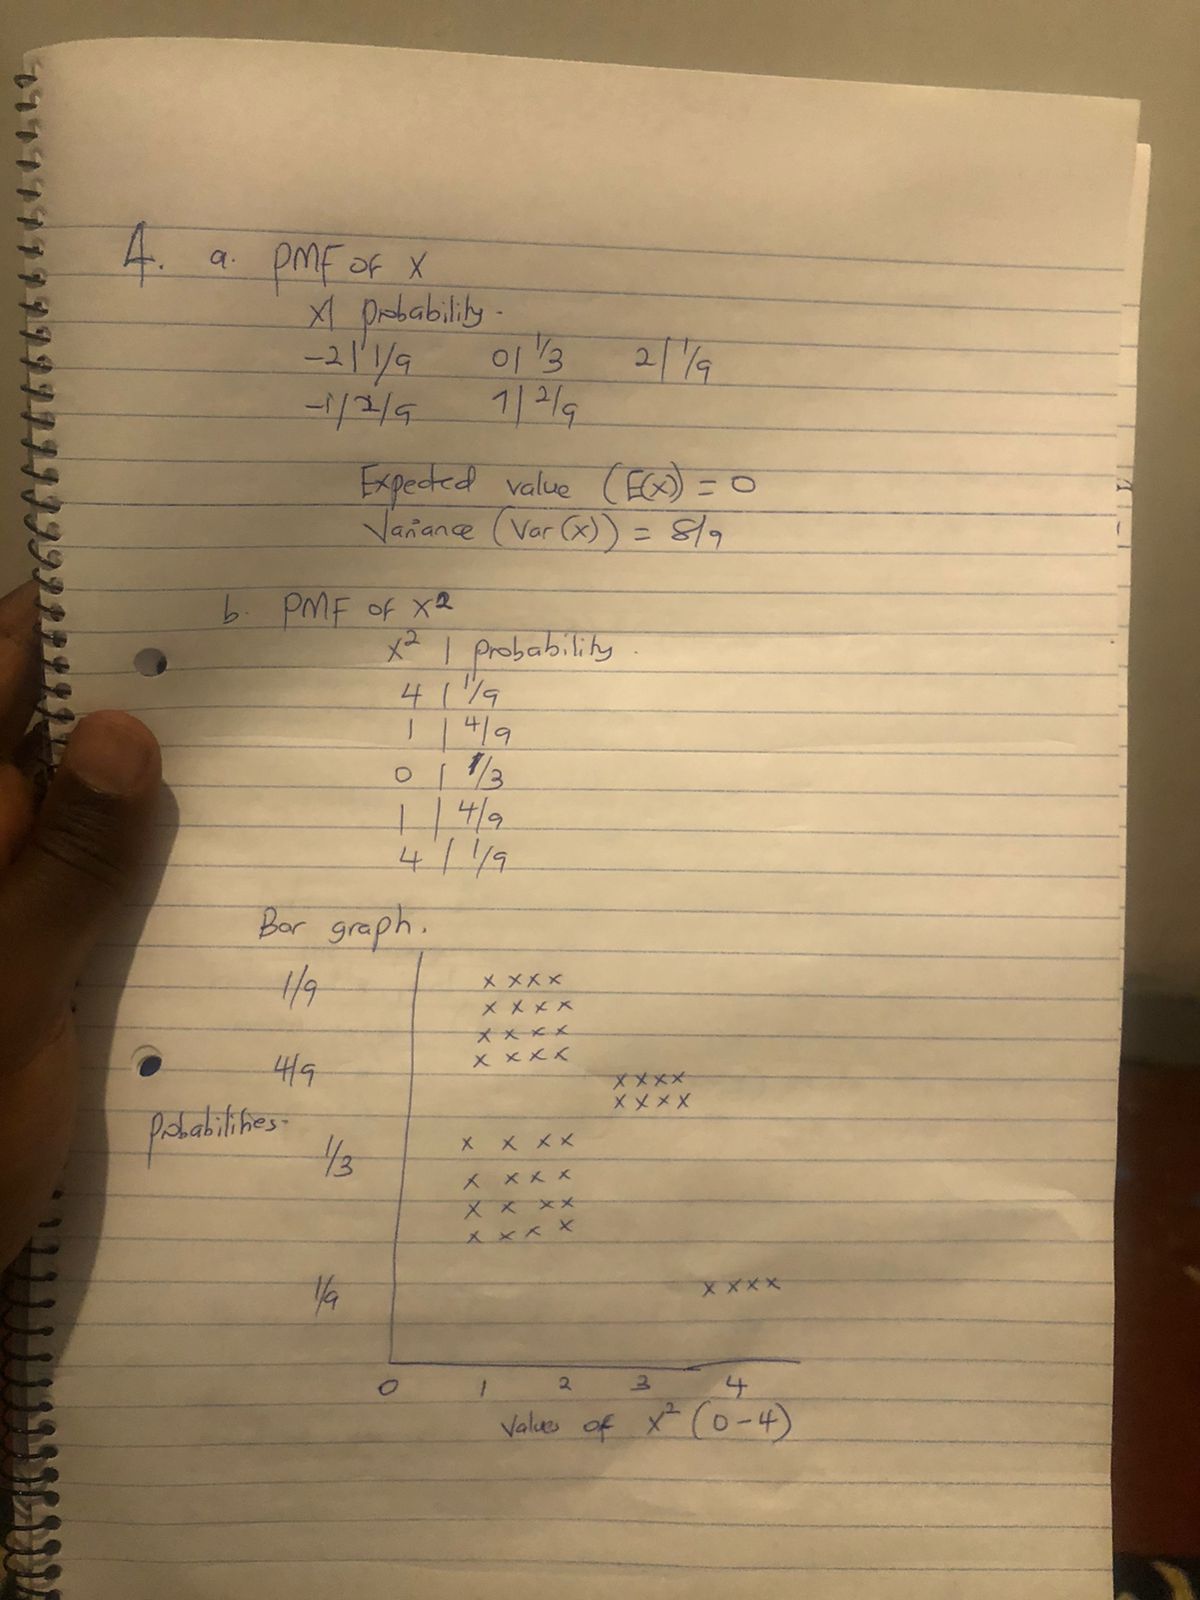 4. a. PMF of X
x| probability.
-2| 1/9 0| 1/3 2| 1/9
-1/2/9 1| 2/9
Expected value (E(x)) = 0
Variance (Var(x)) = 8/9
b. PMF of X2
x2 | probability.
4 | 1/9
1 | 4/9
0 | 1/3
1 | 4/9
4 | 1/9
Bar graph.
1/9 x x x x
x x x x
x x x x
4/9 x x x x
x x x x
x x x x
Probabilities-
1/3 x x x x
x x x x
x x x x
x x x x
1/9 x x x x
0 1 2 3 4
Values of x2 (0-4)